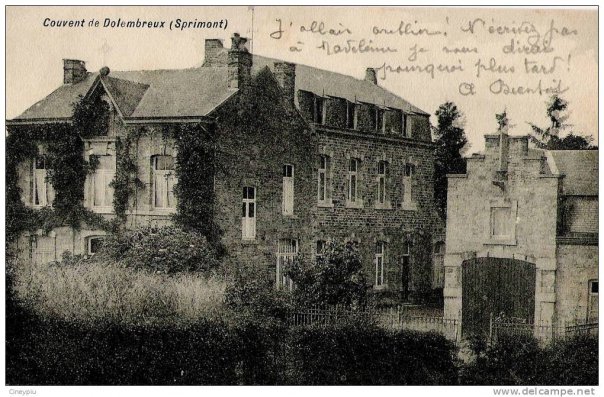 Couvent de Dolembreux (Sprimont)
J'allais oublier! N'écrivez pas
à Madeleine je vous dirai
pourquoi plus tard!
A Bientôt
Gneypiu
© delcampe.net